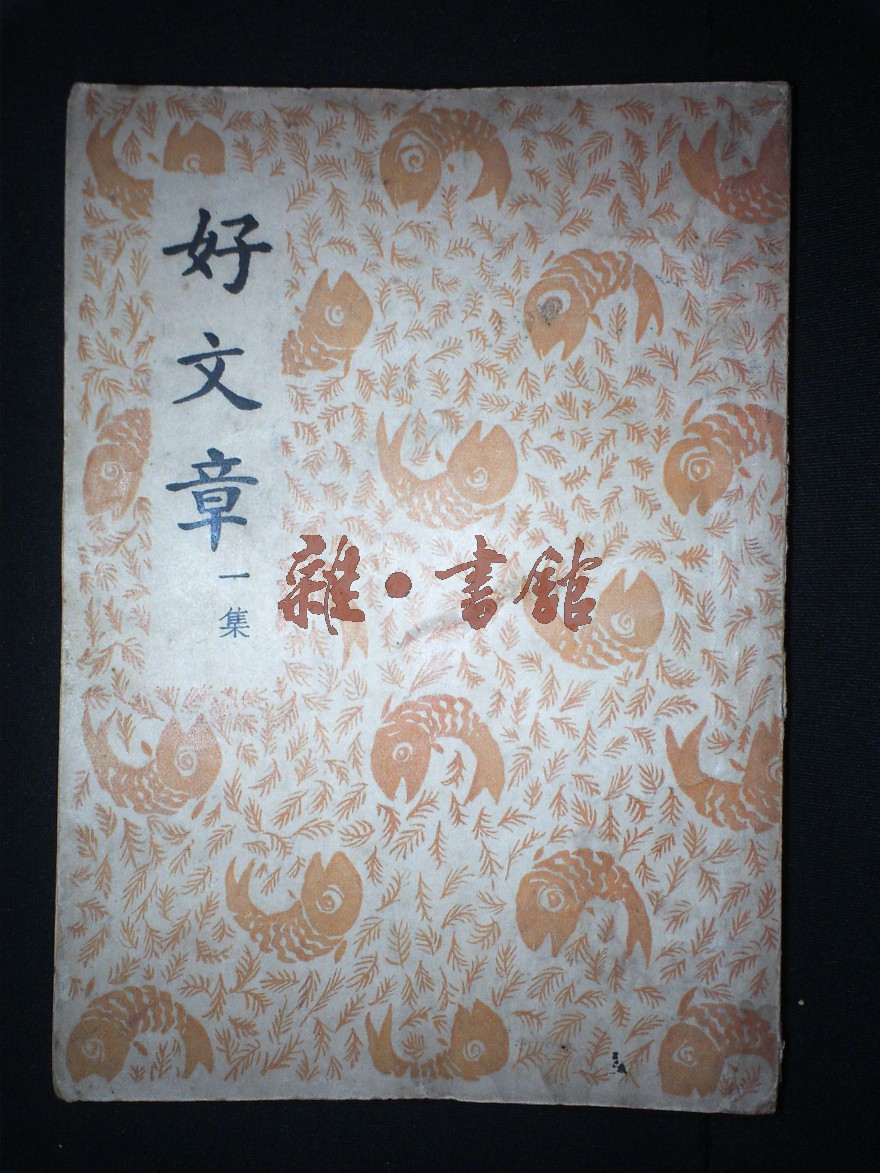 好文章
一集
雜·書館